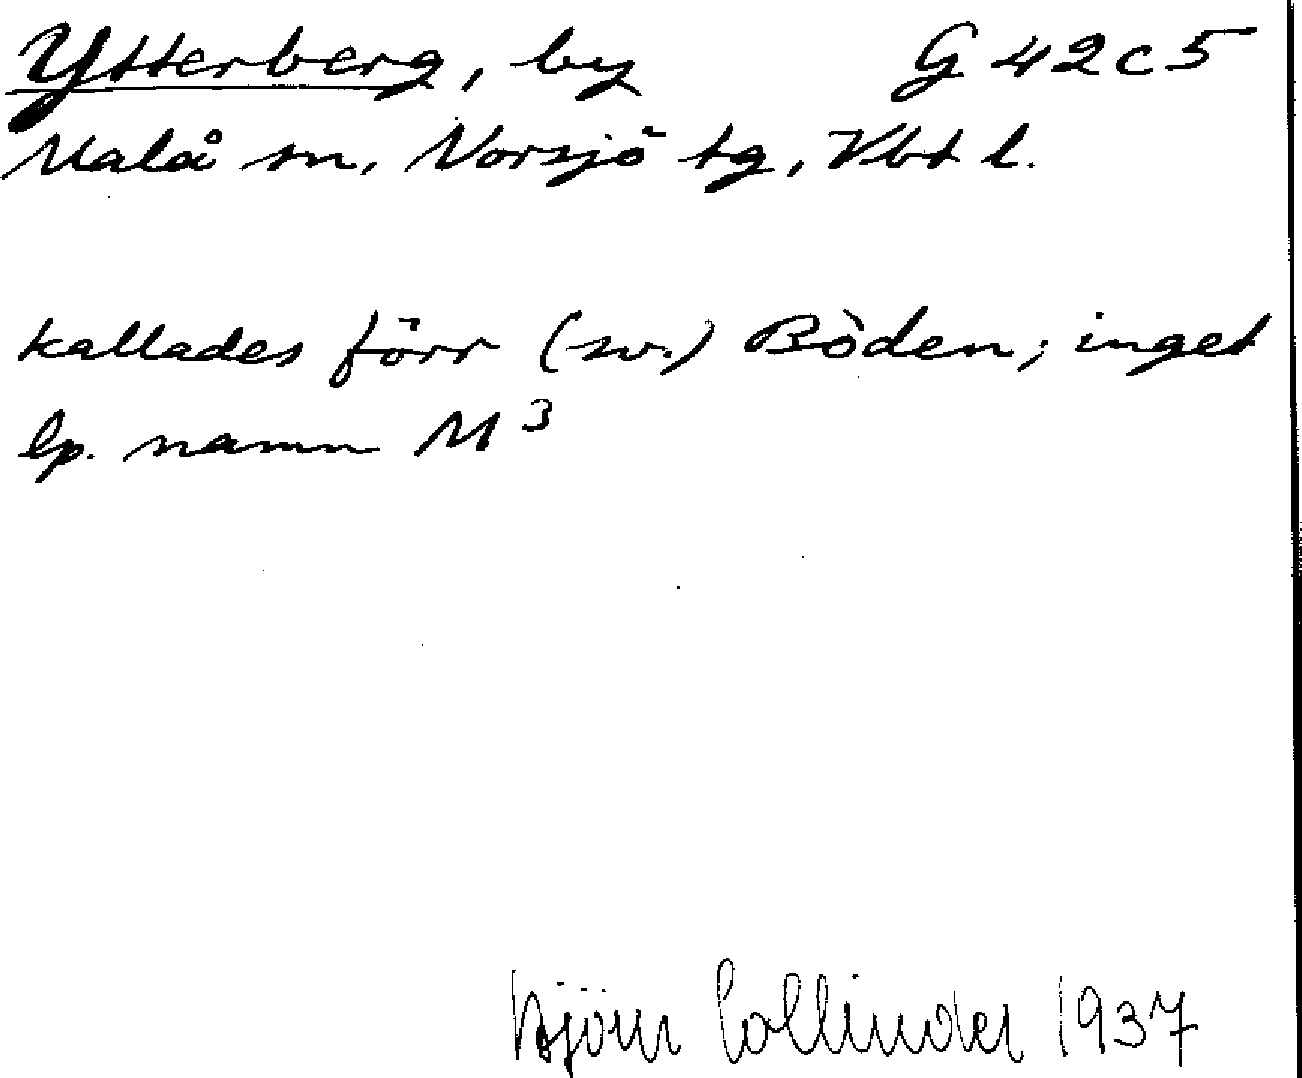 Ytterberg, by G 42 c 5
Malå sn, Norsjö tg, Vbt l.
kallades förr (sv.) Bòden; inget
lp. namn M³
Björn Collinder 1937